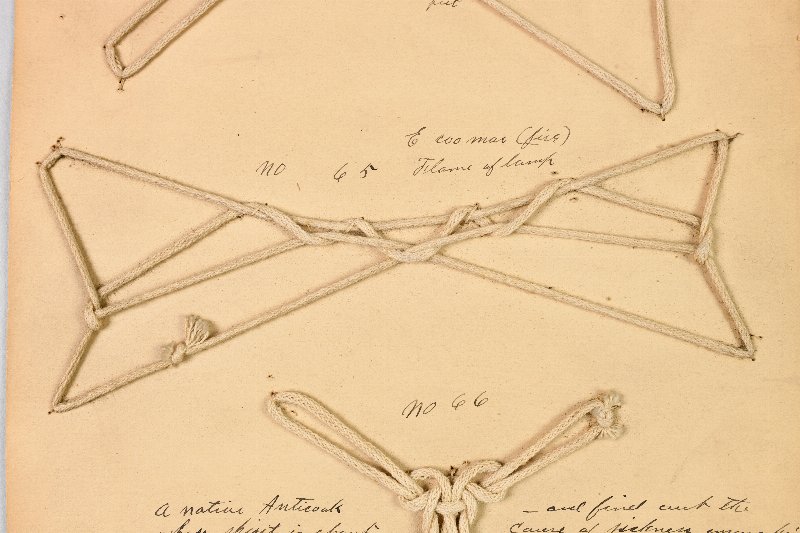 E coo mac (fire)
No 65 Flame of lamp
No 66
a native Anticook
— and find out the
Cause of sickness among